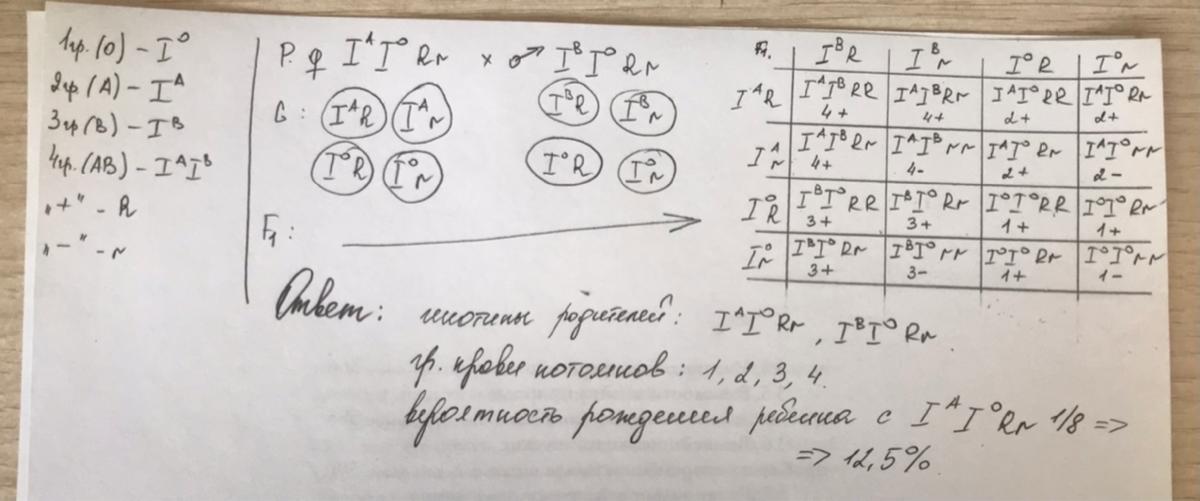 1гр.(0) - I⁰
2гр(A) - Iᴬ
3гр(B) - Iᴮ
4гр.(AB) - IᴬIᴮ
„+" - R
„-" - r
P. ♀ IᴬI⁰ Rr × ♂ IᴮI⁰ Rr
G: IᴬR Iᴬr IᴮR Iᴮr
I⁰R I⁰r I⁰R I⁰r
F₁:
F₁. IᴮR Iᴮr I⁰R I⁰r
IᴬR IᴬIᴮRR 4+ IᴬIᴮRr 4+ IᴬI⁰RR 2+ IᴬI⁰Rr 2+
Iᴬr IᴬIᴮRr 4+ IᴬIᴮrr 4- IᴬI⁰Rr 2+ IᴬI⁰rr 2-
I⁰R IᴮI⁰RR 3+ IᴮI⁰Rr 3+ I⁰I⁰RR 1+ I⁰I⁰Rr 1+
I⁰r IᴮI⁰Rr 3+ IᴮI⁰rr 3- I⁰I⁰Rr 1+ I⁰I⁰rr 1-
Ответ: генотипы родителей: IᴬI⁰Rr, IᴮI⁰Rr
гр. крови потомков: 1, 2, 3, 4.
вероятность рождения ребенка с IᴬI⁰Rr 1/8 =>
=> 12,5%